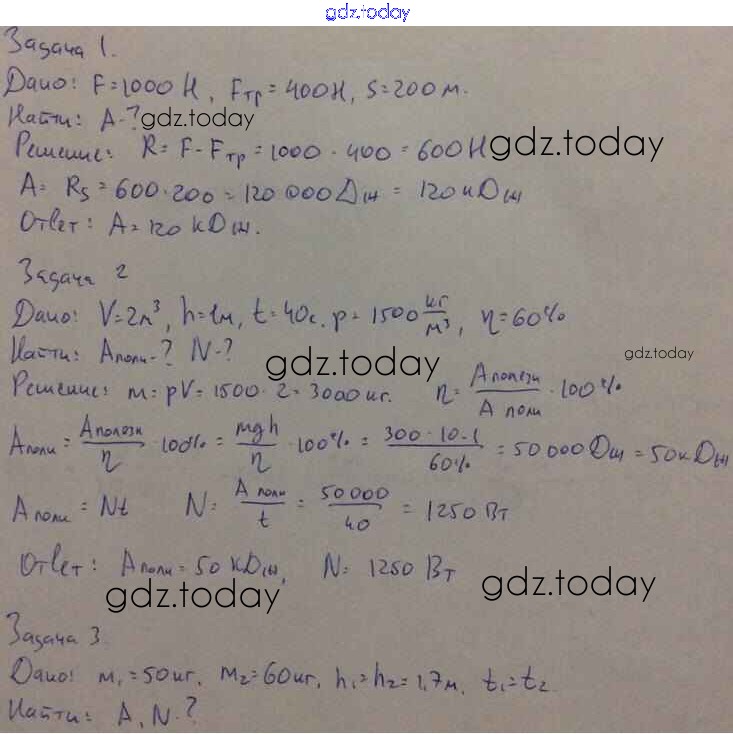 gdz.today
Задача 1.
Дано: F=1000 Н, Fтр=400Н, S=200 м.
Найти: A-? gdz.today
Решение: R=F-Fтр=1000-400=600Н gdz.today
A=RS=600·200=120 000 Дж=120 кДж
Ответ: A=120 кДж.
gdz.today
Задача 2
Дано: V=2м³, h=1м, t=40с. p=1500 кг/м³, η=60%
Найти: Aполн-? N-? gdz.today gdz.today
Решение: m=pV=1500·2=3000 кг. η=Aполезн/Aполн·100%
Aполн=Aполезн/η·100%=mgh/η·100%=300·10·1/60%=50 000 Дж=50 кДж
Aполн=Nt N=Aполн/t=50000/40=1250 Вт
Ответ: Aполн=50 кДж, N=1250 Вт
gdz.today gdz.today
Задача 3.
Дано: m₁=50 кг, m₂=60 кг, h₁=h₂=1,7м, t₁=t₂
Найти: A, N-?